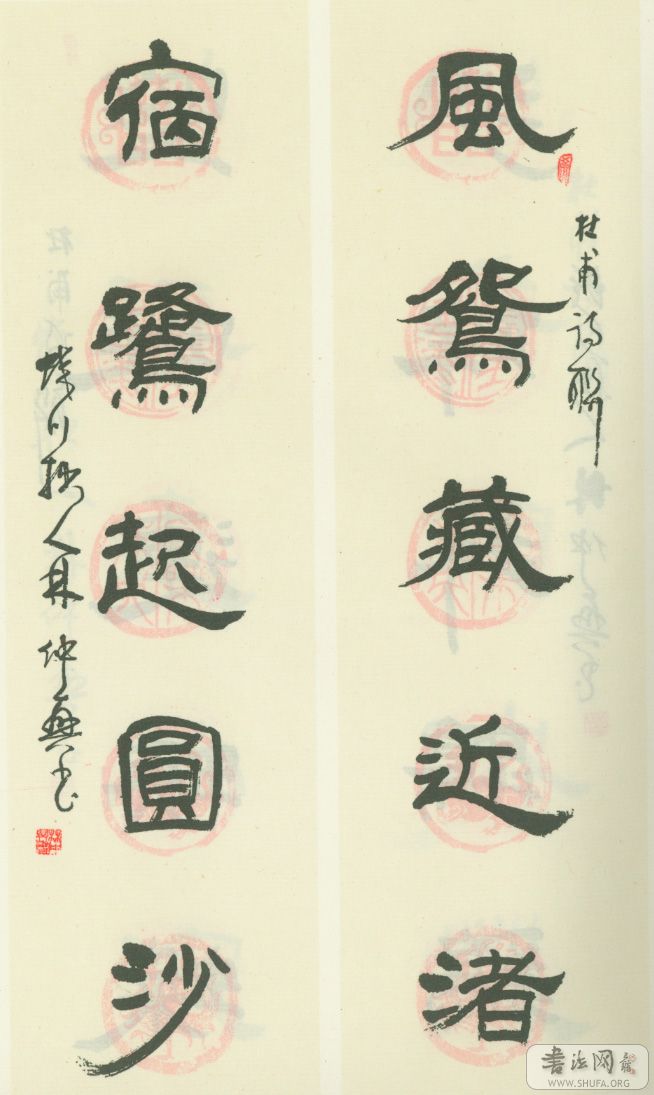 風鴛藏近渚
杜甫诗联
宿鷺起圓沙
林仲兴书
書法网
WWW.SHUFA.ORG